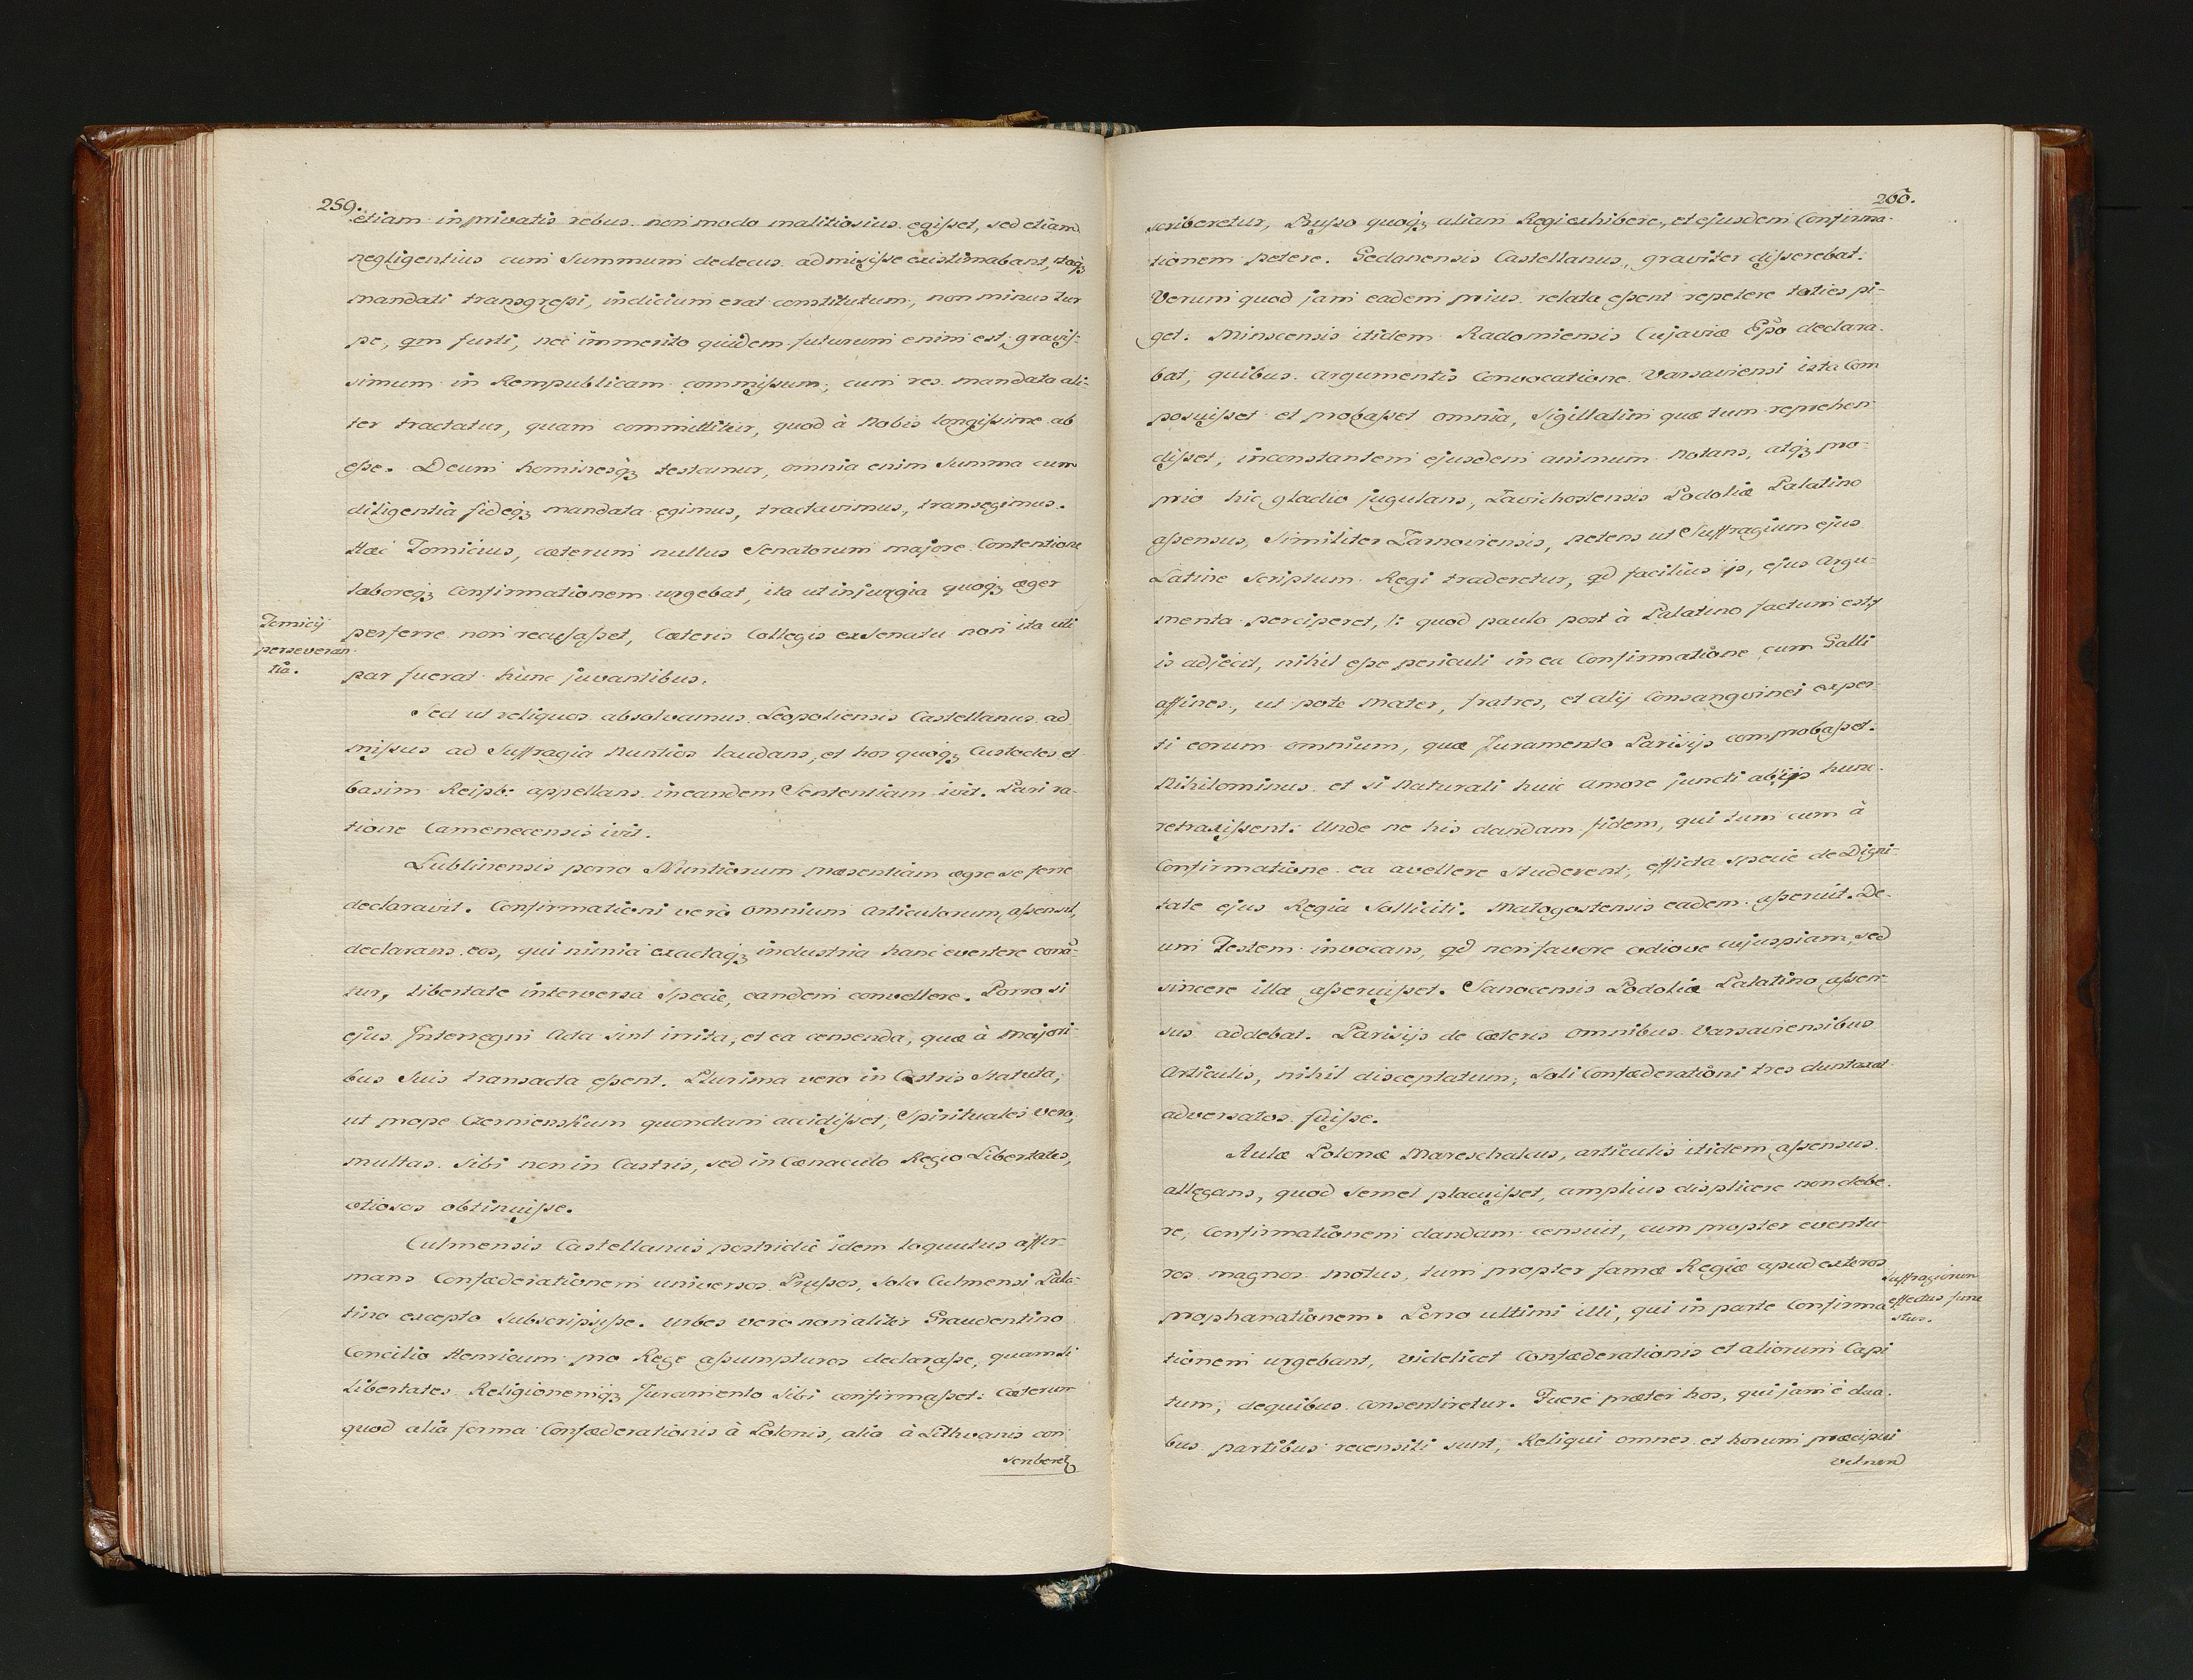 259.
etiam in privatis rebus non modo malitiosius egisset, sed etiam
negligentius cum Summum dedecus admisisse existimabant, itaq3
mandati transgressi, indicium erat constitutum, non minus tur
pe, qm furti, nec immerito quidem futurum enim est, gravis-
simum in Rempublicam commissum, cum res mandata ali-
ter tractatur, quam committitur, quod à Nobis longissime ab
esse. Deum hominesq3 testamur, omnia enim Summa cum
diligentia fideq3 mandata egimus, tractavimus, transegimus.
Hæc Tomicius, cæterum nullus Senatorum majore Contentione
laboreq3 Confirmationem urgebat, ita ut injurgia quoq3 æger
Tomicij
perseveran
tia.
perferre non recusasset, Cæteris Collegis ex Senatu non ita uti
par fuerat hunc juvantibus.
Sed ut reliquos absolvamus. Leopoliensis Castellanus ad
missus ad Suffragia Nuntios laudans, et hos quoq3 Custodes et
basim Reipb: appellans in eandem Sententiam ivit. Pari ra-
tione Camenecensis ivit.
Lublinensis porro Nuntiorum præsentiam ægre se ferre
declaravit. Confirmationi verò omnium Articulorum, assensit,
declarans eos, qui nimia exactaq3 industria hanc evertere conã-
tur, libertate interversa Specie, eandem convellere. Porro si
ejus Interregni Acta sint irrita, et ea censenda, quæ à Majori-
bus Suis transacta essent. Plurima vero in Castris Statuta,
ut prope Czernienskum quondam accidisset, Spirituales vero,
multas Sibi non in Castris, sed in Cænaculo Regio Libertates,
otiosos obtinuisse.
Culmensis Castellanus postridie idem loquutus affir-
mans Confæderationem universos Prussos, Solo Culmensi Pala-
tino excepto subscripsisse. Urbes vero non aliter Graudentino
Concilio Henricum pro Rege assumpturos declarasse, quam si
Libertates Religionemq3 Juramento Sibi confirmasset: Cæterum
quod alia forma Confæderationis à Polonis, alia à Lithvanis con
scriberet3
260.
scriberetur, Prusso quoq3 aliam Regi exhibere, et ejusdem Confirma-
tionem petere. Gedanensis Castellanus, graviter disserebat.
Verum quod jam eadem prius relata essent repetere toties pi-
get. Minscensis itidem Radomiensis Cujaviæ Epo declara-
bat, quibus argumentis Convocatione Varsaviensi ista Com
posuisset et probasset omnia, Sigillatim quæ tum reprehen
disset, inconstantem ejusdem animum notans, atq3 pro-
prio hic gladio jugulans, Zavichostensis Podoliæ Palatino
assensus, Similiter Zarnoviensis, petens ut Suffragium ejus
Latine Scriptum Regi traderetur, qd facilius is, ejus Argu-
menta perciperet, /: quod paulo post à Palatino factum est :/
is adjecit, nihil esse periculi in ea Confirmatione cum Galli
affines, ut pote Mater, fratres, et alij Consangvinei exper-
ti eorum omnium, quæ Juramento Parisijs comprobasset.
Nihilominus et si Naturali huic amore juncti ab ijs hunc
retraxissent: Unde ne his dandam fidem, qui tum cum à
Confirmatione ea avellere Studerent, efficta Specie de Digni-
tate ejus Regia Solliciti. Malogostensis eadem asseruit. De-
um Testem invocans, qd non favore odiove cujuspiam, sed
sincere illa asseruisset. Sanocensis Podoliæ Palatino assen-
sus addebat. Parisijs de Cæteris omnibus Varsaviensibus
Articulis, nihil disceptatum, Soli Confæderationi tres duntaxat
adversatos fuisse.
Aulæ Polonæ Mareschalcus, articulis itidem assensus
allegans, quod Semel placuisset, amplius displicere non debe-
re, Confirmationem dandam censuit, cum propter eventu-
ros magnos motus, tum propter famæ Regiæ apud exteros
Suffragiorum
effectus fune
stus.
prophanationem. Porro ultimi illi, qui in parte Confirma-
tionem urgebant, videlicet Confæderationis et aliorum Capi
tum, de quibus Consentiretur. Fuere præter hos, qui jam è dua-
bus partibus recensiti sunt, Reliqui omnes et horum præcipui